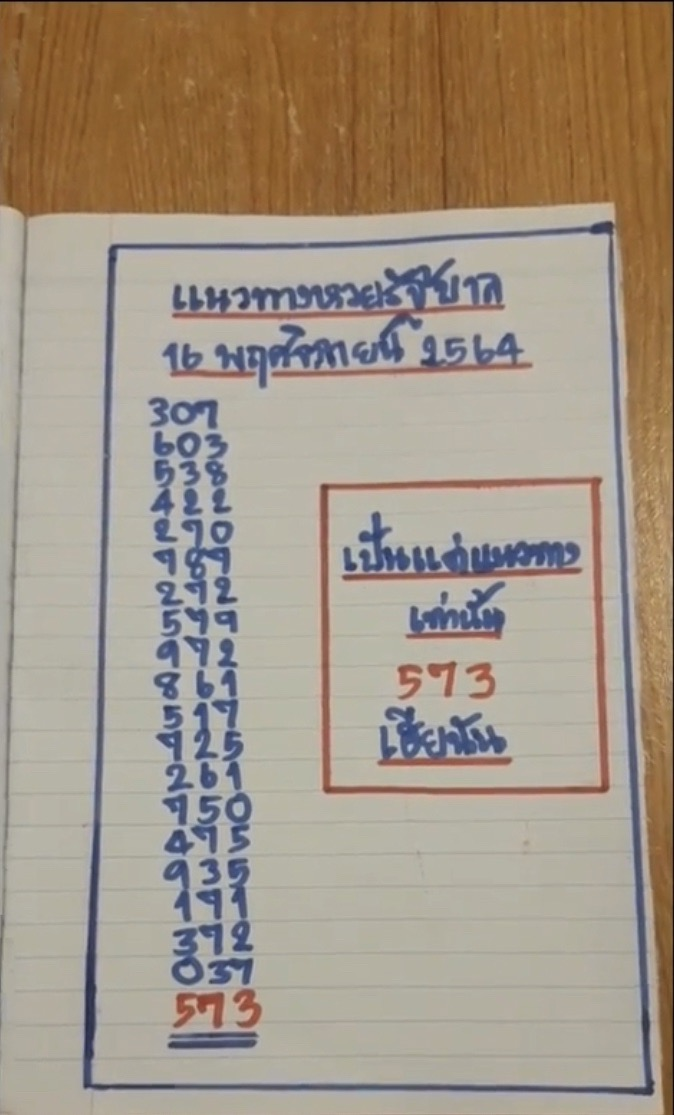 แนวทางหวยรัฐบาล
16 พฤศจิกายนี้ 2564
307
603
538
422
270
787
272
579
972
861
517
725
261
750
475
935
191
372
037
573
เป็นแค่แนวทาง
เท่านั้น
573
เฮียนัน